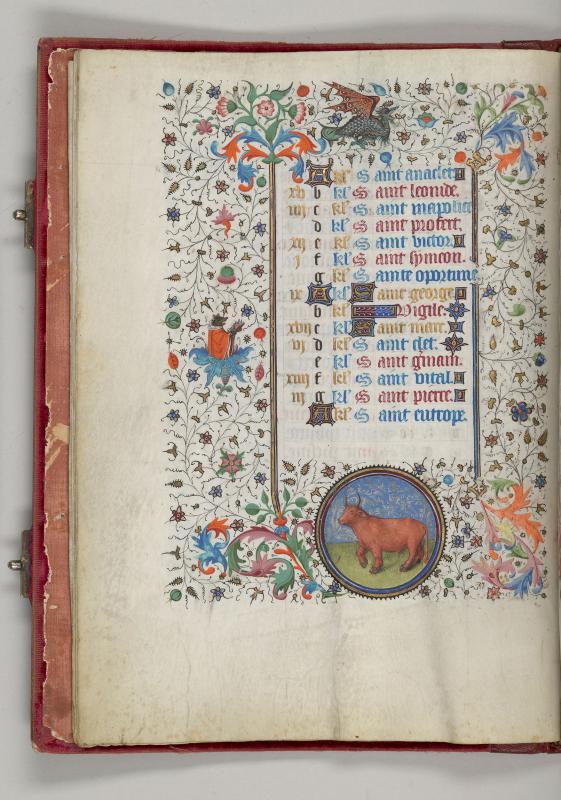 A kl' Saint anaclet
xij b kl' Saint leonide.
iiij c kl' Saint mapolice
d kl' Saint profect.
xij e kl' Saint victor.
j f kl' Saint symeon.
g kl' Sainte oportune
ix A kl' Saint george.
b kl' Vigile.
xvij c kl' Saint marc.
vj d kl' Saint clet.
e kl' Saint gmain.
xiiij f kl' Saint vital.
iij g kl' Saint pierre.
A kl' Saint eutrope.